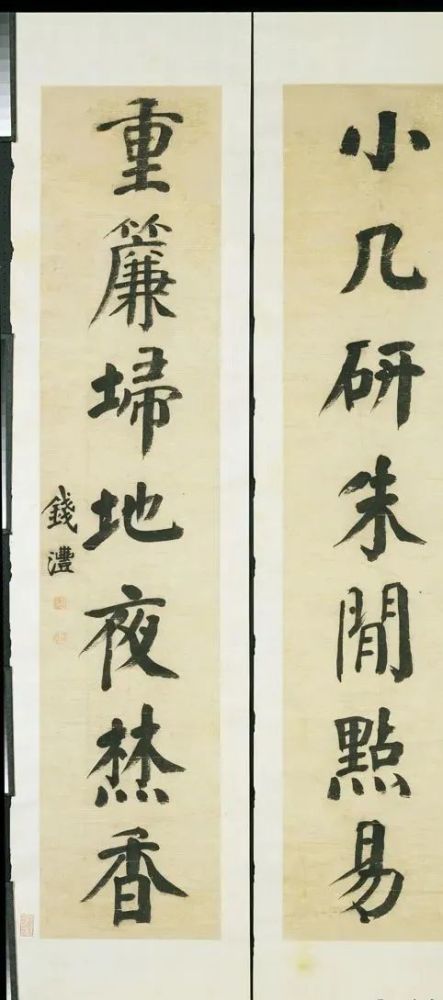 小几研朱閒點易
重簾埽地夜焚香
錢灃